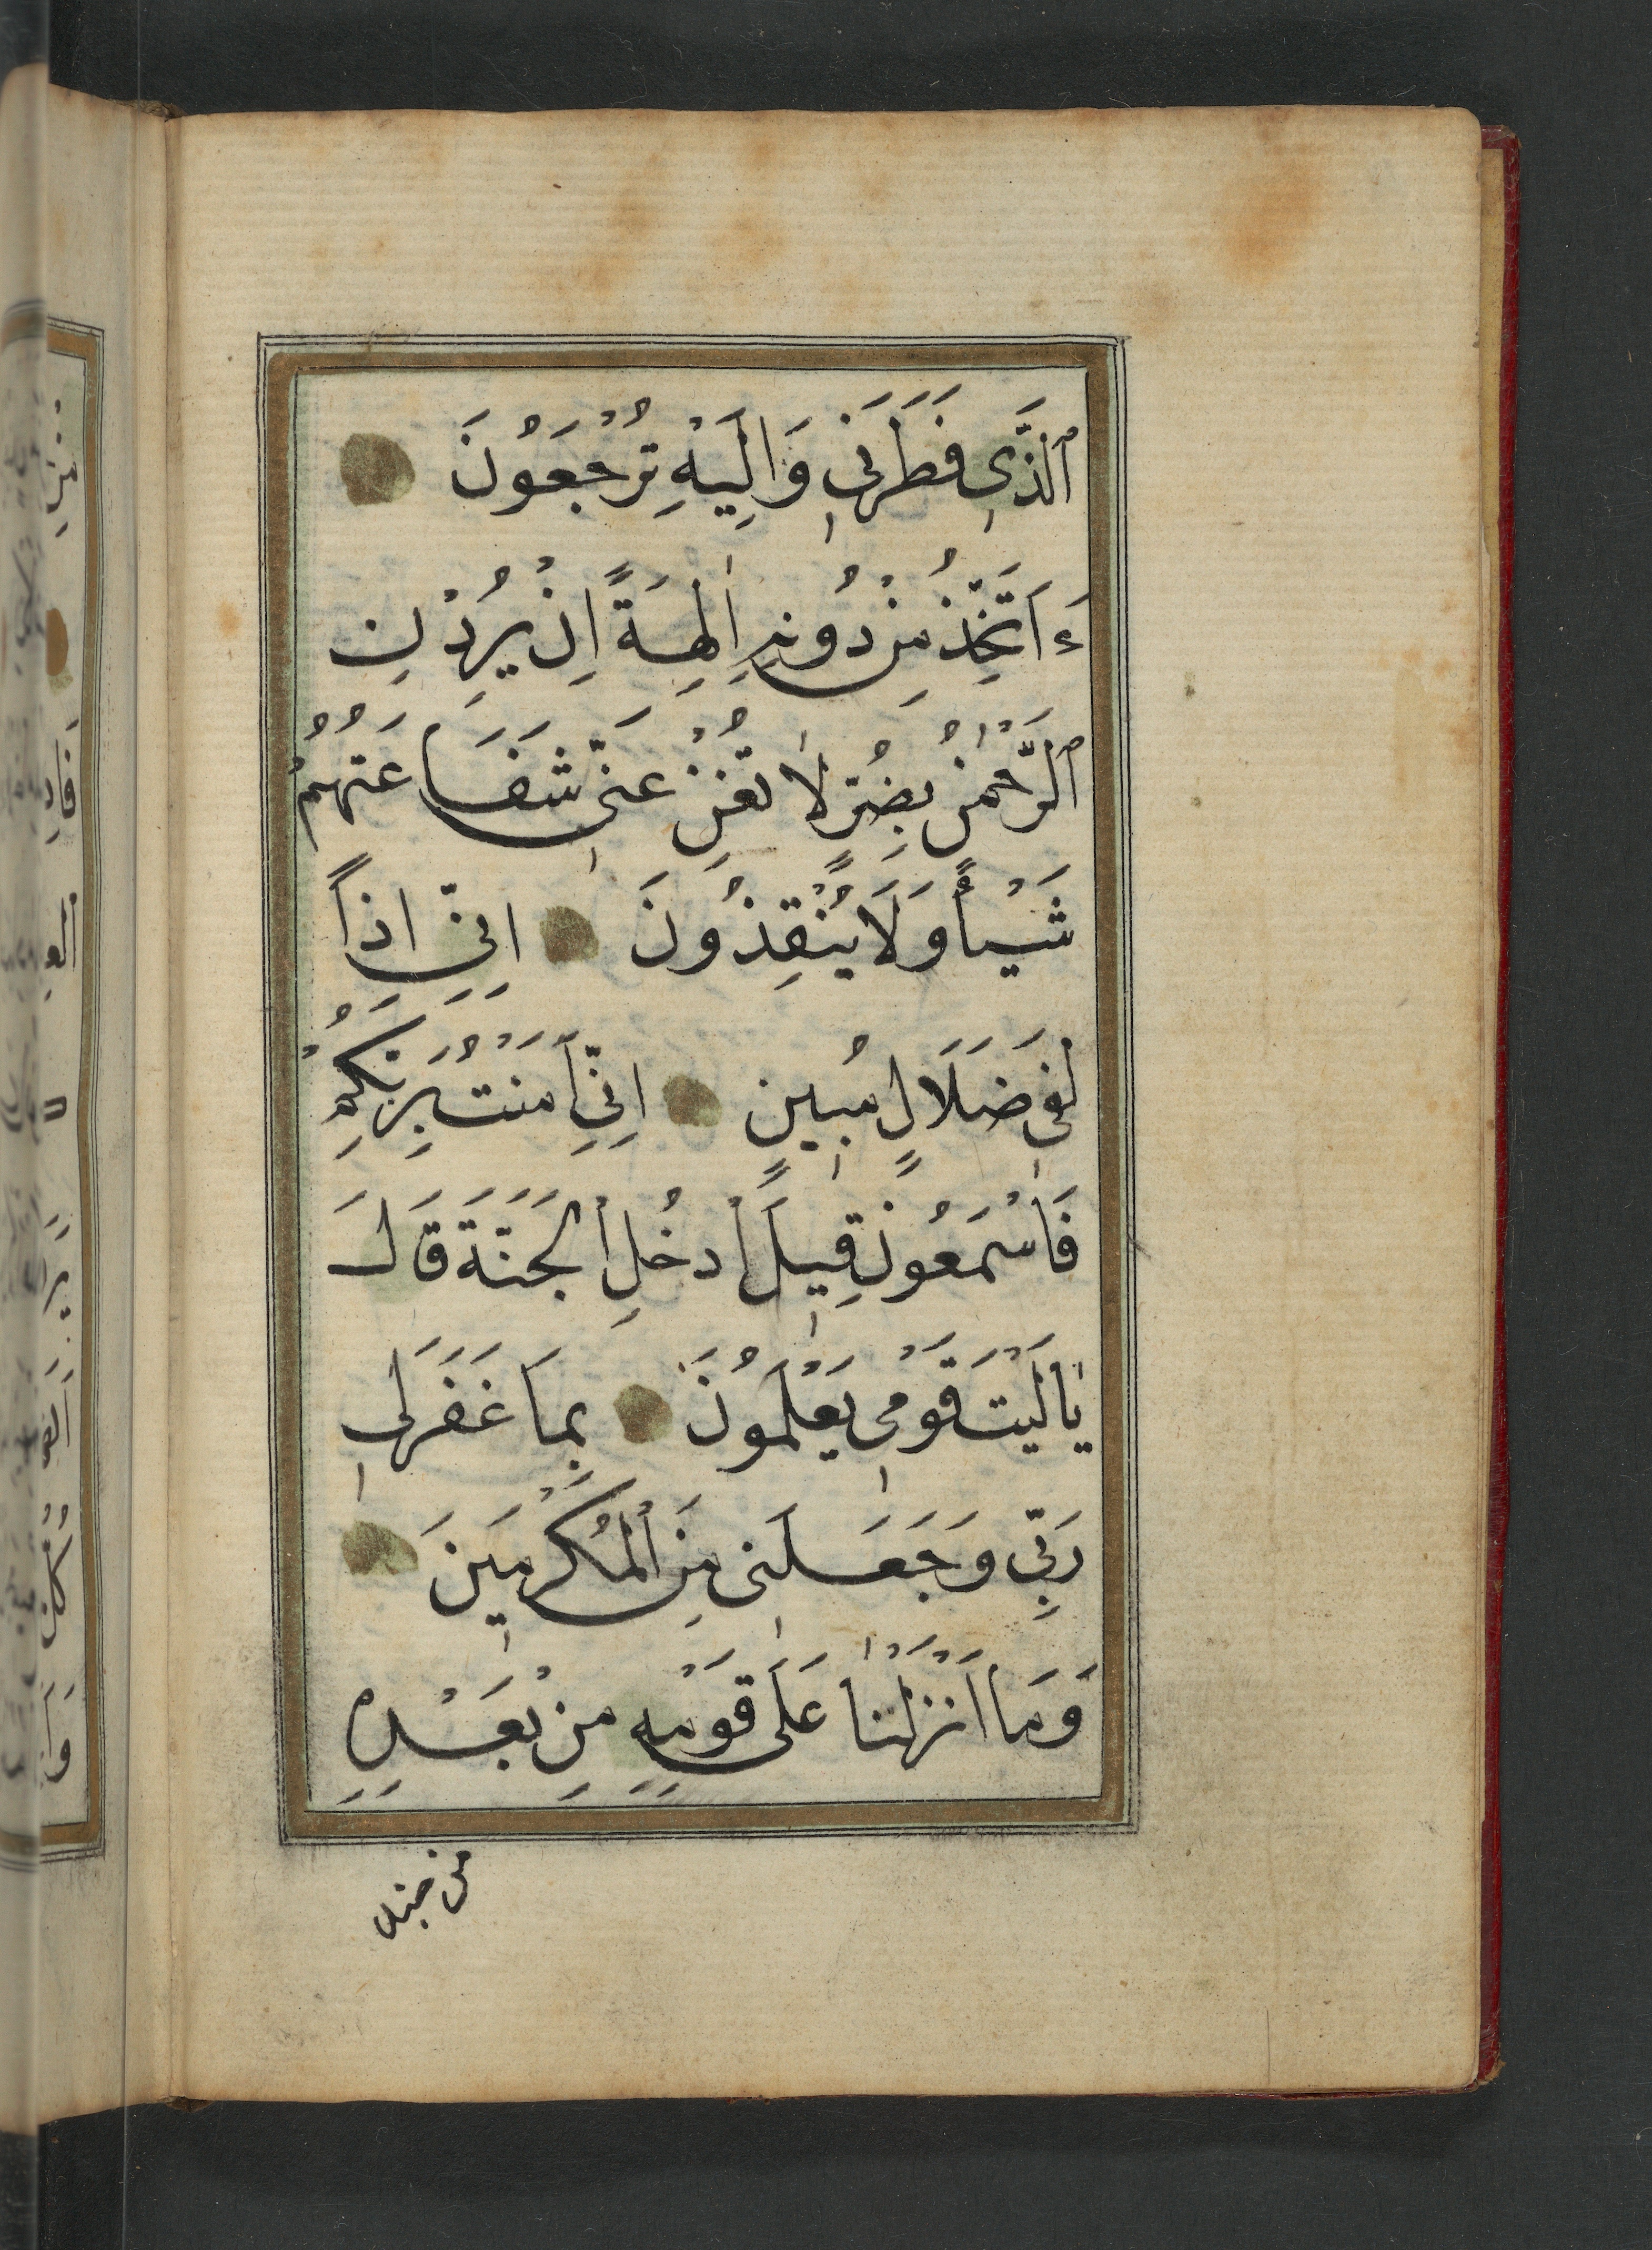 ٱلَّذِى فَطَرَنِى وَاِلَيْهِ تُرْجَعُوْنَ
ءَاَتَّخِذُ مِنْ دُونِهِ اٰلِهَةً اِنْ يُرِدْنِ
ٱلرَّحْمٰنُ بِضُرٍّ لَا تُغْنِ عَنِّى شَفَاعَتُهُمْ
شَيْـًٔا وَلَا يُنْقِذُونَ اِنِّى اِذًا
لَفِى ضَلَالٍ مُبِينٍ اِنِّى اٰمَنْتُ بِرَبِّكُمْ
فَاسْمَعُونِ قِيلَ ٱدْخُلِ ٱلْجَنَّةَ قَالَ
يَا لَيْتَ قَوْمِى يَعْلَمُوْنَ بِمَا غَفَرَلِى
رَبِّى وَجَعَلَنِى مِنَ ٱلْمُكْرَمِينَ
وَمَا اَنْزَلْنَا عَلَى قَوْمِهِ مِنْ بَعْدِهِ
من جند